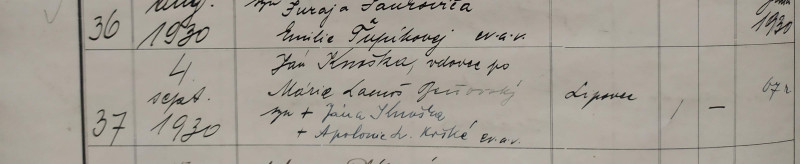 36
1930
syn Juraja Jauroviča
Emilie Ťupikovej ev.a.v.
1930
37
4
sept.
1930
Ján Knoška, vdovec po
Márie Lacuš
syn + Jána Knoška
+ Apolonie r. Kršké ev.a.v.
Lipovec
/
—
67 r